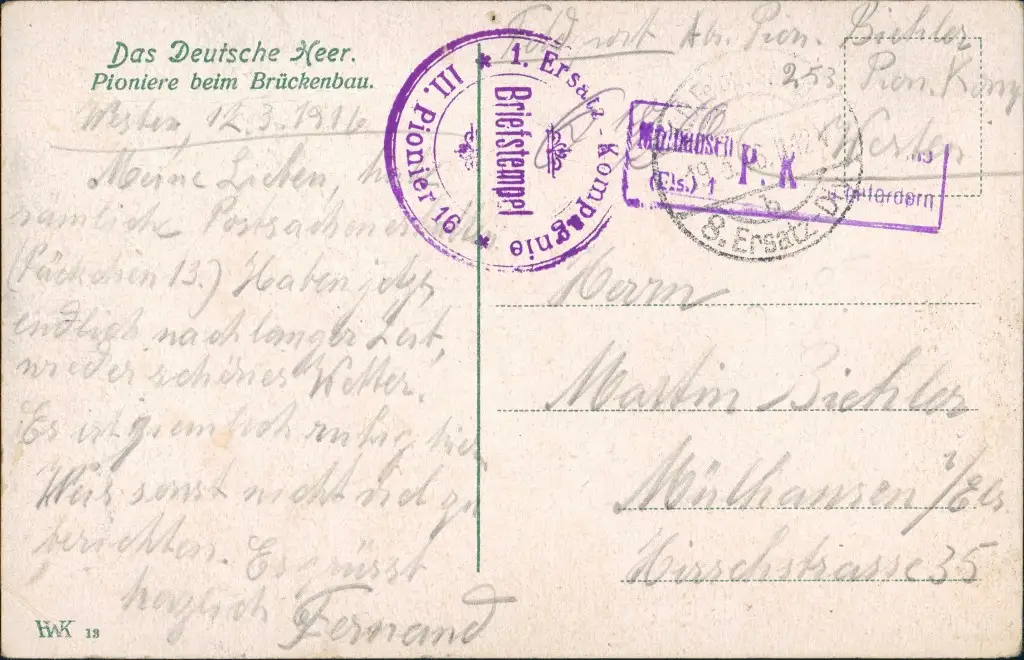 Das Deutsche Heer.
Pioniere beim Brückenbau.
Westen, 12.3.1916
Meine Lieben,
sämtliche Postsachen erhalten
(Päckchen 13.) Haben jetzt
endlich nach langer Zeit,
wieder schönes Wetter.
Es ist ziemlich ruhig hier
Weis sonst nicht viel zu
berichten. Es grüsst
herzlich Fernand
HWK 13
1. Ersatz-Kompagnie
III. Pionier 16
Briefstempel
Feldpost Abs. Pion. Bichler
253. Pion. Komp.
Westen
Mülhausen
(Els.) 1
P. K
8. Ersatz-Div
b
Herrn
Martin Bichler
Mülhausen i/Els
Hirschstrasse 35